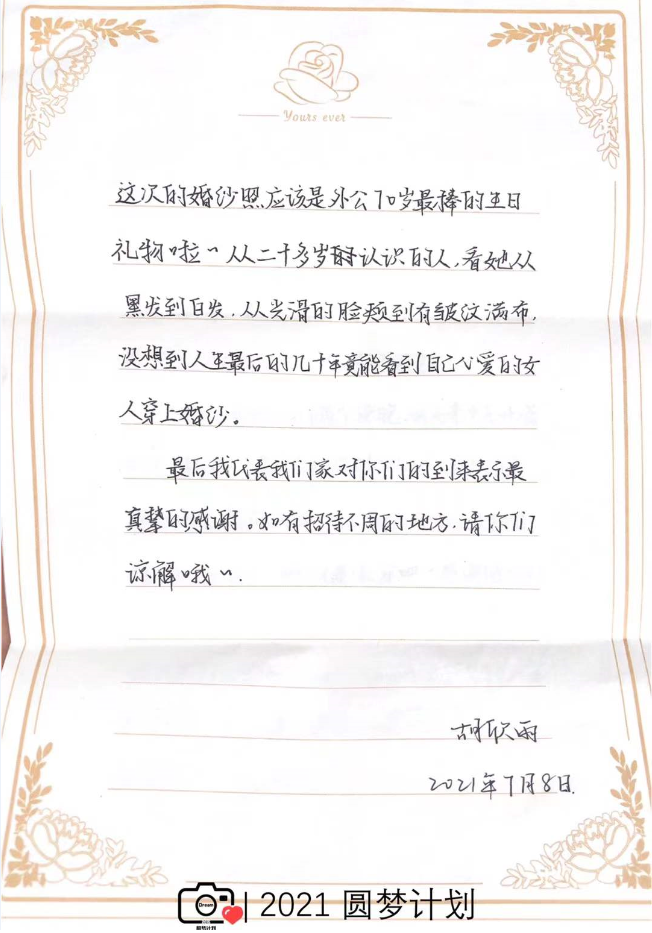 Yours ever
这次的婚纱照应该是外公70岁最棒的生日
礼物啦~从二十多岁时认识的人,看她从
黑发到白发,从光滑的脸颊到有皱纹满布,
没想到人生最后的几十年竟能看到自己心爱的女
人穿上婚纱。
最后我代表我们家对你们的到来表示最
真挚的感谢。如有招待不周的地方,请你们
谅解哦~.
胡欣雨
2021年7月8日.
Dream
圆梦计划
| 2021 圆梦计划